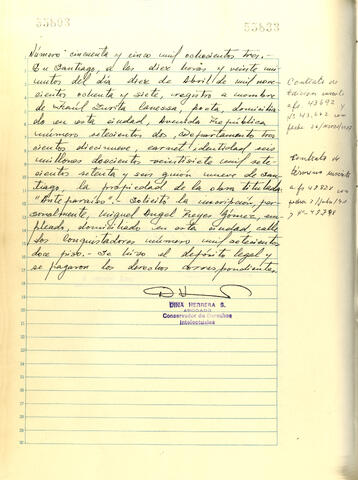 55803
55803
Número cincuenta y cinco mil ochocientos tres.-
En Santiago, a las diez horas y veinte mi-
nutos del día diez de Abril de mil nove-
cientos ochenta y siete, registro a nombre
de Raúl Zurita Canessa, poeta, domicilia-
do en esta ciudad, Avenida República
número setecientos dos, departamento tres
cientos diecinueve, carnet identidad seis
millones doscientos veintisiete mil sete-
cientos setenta y seis guión nueve de San-
tiago, la propiedad de la obra titulada
"Anteparaíso".- Solicitó la inscripción, per-
sonalmente, Miguel Angel Reyes Gómez, em-
pleado, domiciliado en esta ciudad, calle
los Conquistadores número mil setecientos
doce piso.- Se hizo el depósito legal y
se pagaron los derechos correspondientes.
Contrato de
Edición
a fs 43692 y
Nº 43.202 con
fecha
Contrato de
a fs con
fecha
y Nº
DINA HERRERA S.
ABOGADO
Conservador de Derechos
Intelectuales